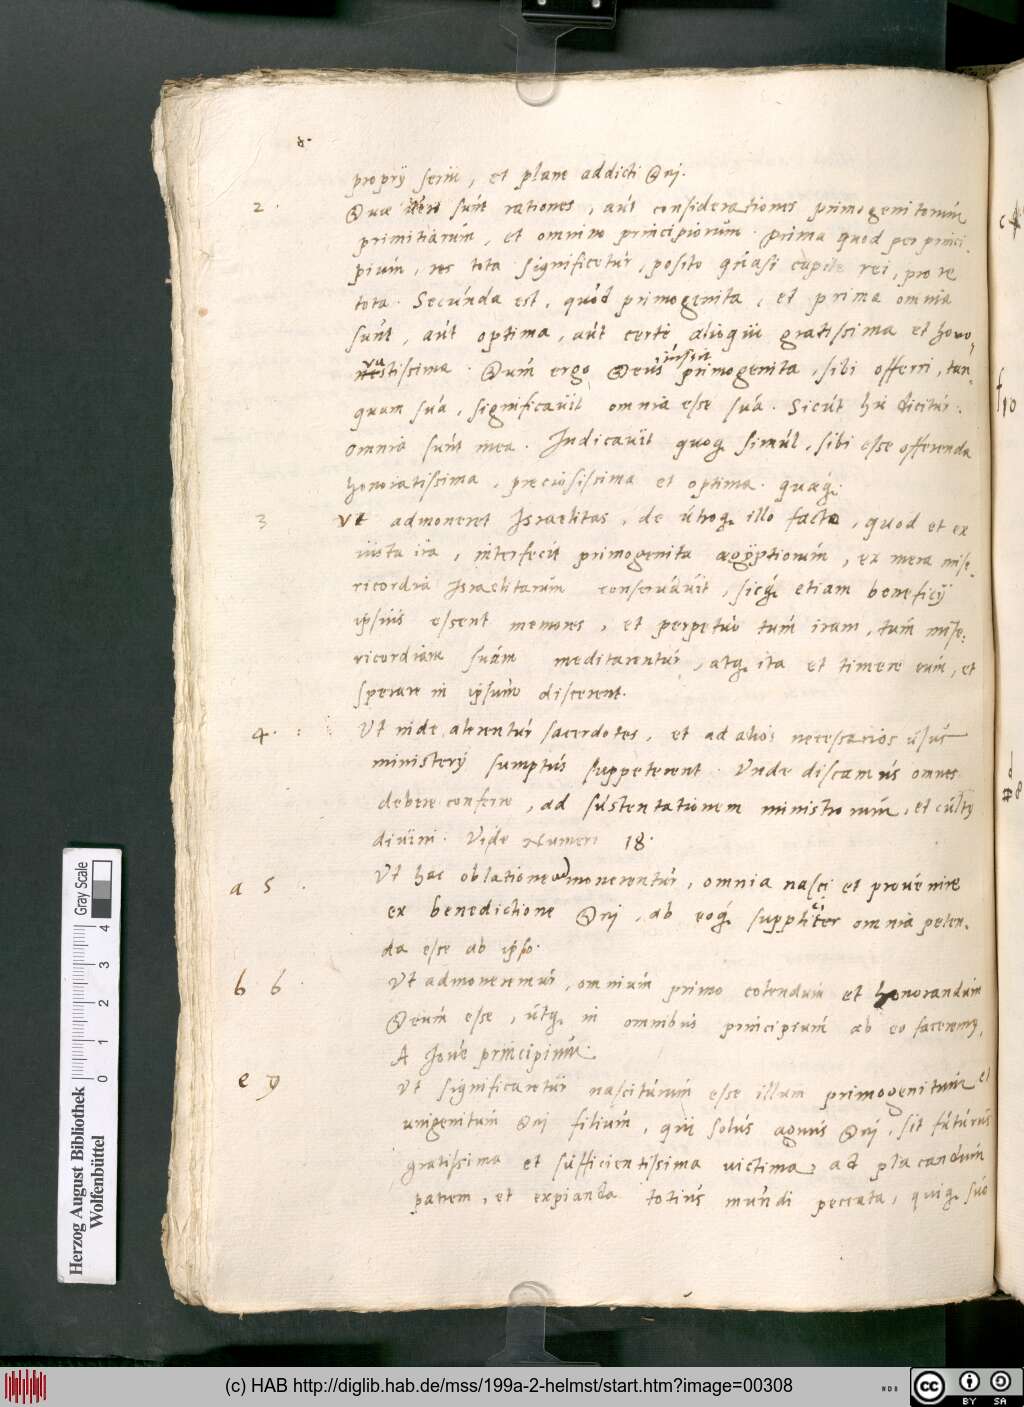 8.
proprij serui, et plane addicti Dnj.
2. Quae uero sunt rationes, aut considerationes primogenitorum
primitiarum, et omnino principiorum. Prima quod per princi-
pium, res tota significetur, posito quasi capite rei, pro re
tota. Secunda est, quod primogenita, et prima omnia
sunt, aut optima, aut certe alioqui gratissima et hono-
ra
tissima. Dum ergo Deus iussit primogenita, sibi offerri, tan-
quam sua, significauit omnia esse sua. Sicut hic dicitur.
Omnia sunt mea. Indicauit quoq. simul, sibi esse offerenda
honoratissima, preciosissima et optima quaeq.
3 Vt admoneret Israelitas, de utroq. illo facto, quod et ex
iusta ira, interfecit primogenita aegyptiorum, ex mera mise-
ricordia Israelitarum conseruauit, sicq. etiam beneficij
ipsius essent memores, et perpetuo tum iram, tum mise-
ricordiam suam meditarentur, atq. ita et timere eum, et
sperare in ipsum discerent.
4. Vt inde alerentur sacerdotes, et ad alios necessarios usus
ministerij sumptus suppeterent. Vnde discamus omnes
debere conferre, ad sustentationem ministrorum, et cultus
diuini. Vide Numeri 18.
a 5. Vt hac oblatione admonerentur, omnia nasci et prouenire
ex benedictione Dnj, ab eoq. suppliciter omnia peten-
da esse ab ipso.
b 6. Vt admoneremur, omnium primo colendum et honorandum
Deum esse, utq. in omnibus principium ab eo faceremus,
A Ioue principium.
e 7 Vt significaretur nasciturum esse illum primogenitum et
unigenitum Dnj filium, qui solus agnus Dnj, sit futurus
gratissima et sufficientissima uictima, ad placandum
patrem, et expianda totius mundi peccata, quiq. suo
Herzog August Bibliothek
Wolfenbüttel
0 1 2 3 4
Gray Scale
(c) HAB http://diglib.hab.de/mss/199a-2-helmst/start.htm?image=00308
cc BY SA